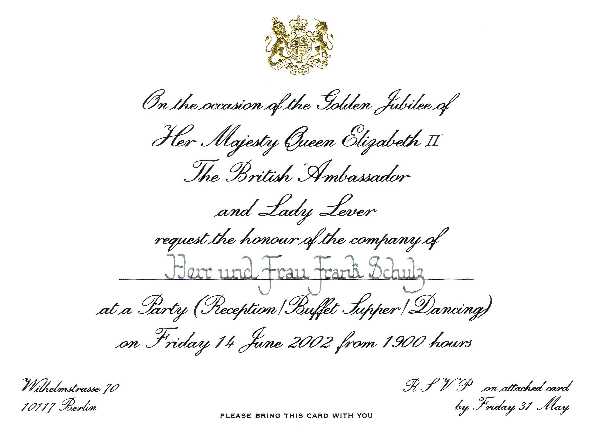 On the occasion of the Golden Jubilee of
Her Majesty Queen Elizabeth II
The British Ambassador
and Lady Lever
request the honour of the company of
Herr und Frau Frank Schulz
at a Party (Reception/Buffet Supper/Dancing)
on Friday 14 June 2002 from 1900 hours
Wilhelmstrasse 70
10117 Berlin
R S V P on attached card
by Friday 31 May
PLEASE BRING THIS CARD WITH YOU